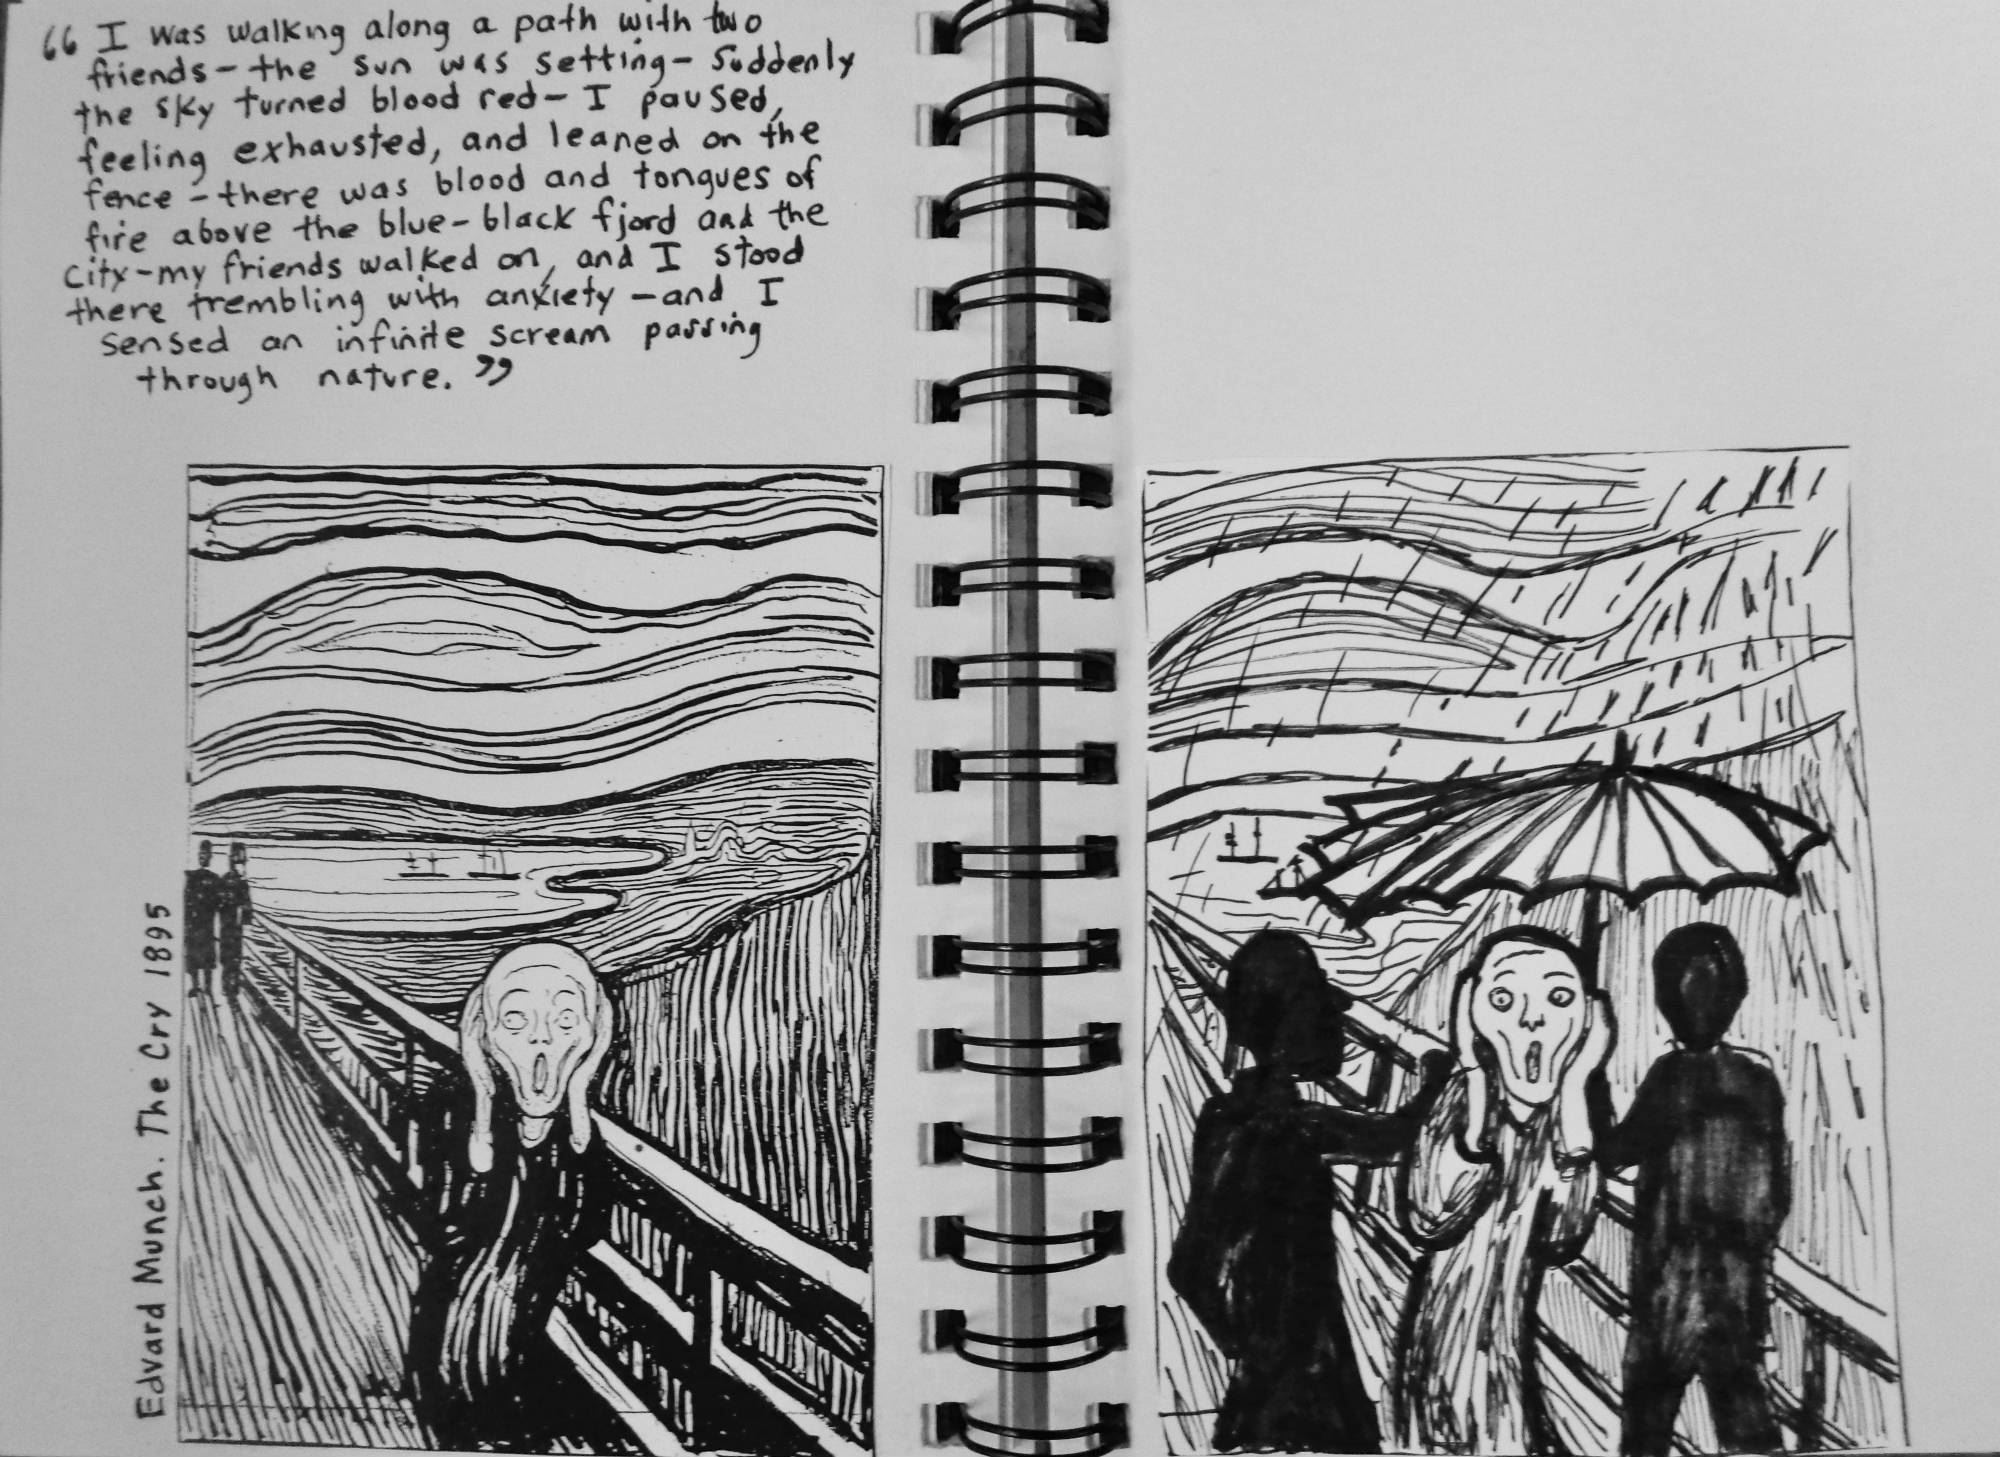 “ I was walking along a path with two
friends – the sun was setting – Suddenly
the sky turned blood red – I paused,
feeling exhausted, and leaned on the
fence – there was blood and tongues of
fire above the blue-black fjord and the
City – my friends walked on, and I stood
there trembling with anxiety – and I
sensed an infinite scream passing
through nature. ”
Edvard Munch. The Cry 1895